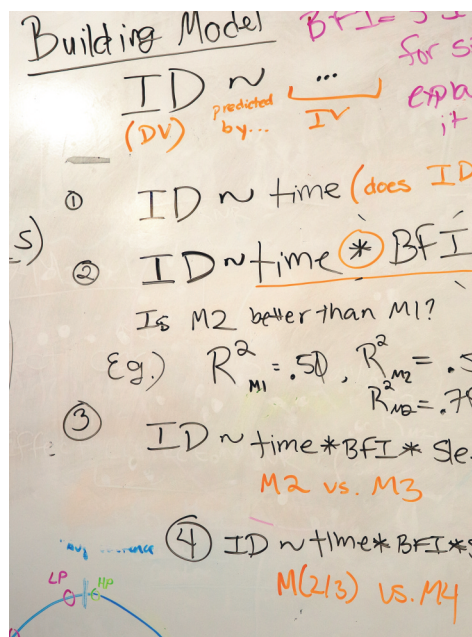 Building Model
BFI =
for
ID ~ ...
(DV) predicted by... IV
it
① ID ~ time (does ID
② ID ~ time * BFI
Is M2 better than M1?
Eg.) R² M1 = .50, R² M2 =
R² M2 =
③ ID ~ time * BFI *
M2 vs. M3
④ ID ~ time * BFI *
M(2/3) vs. M4
LP HP